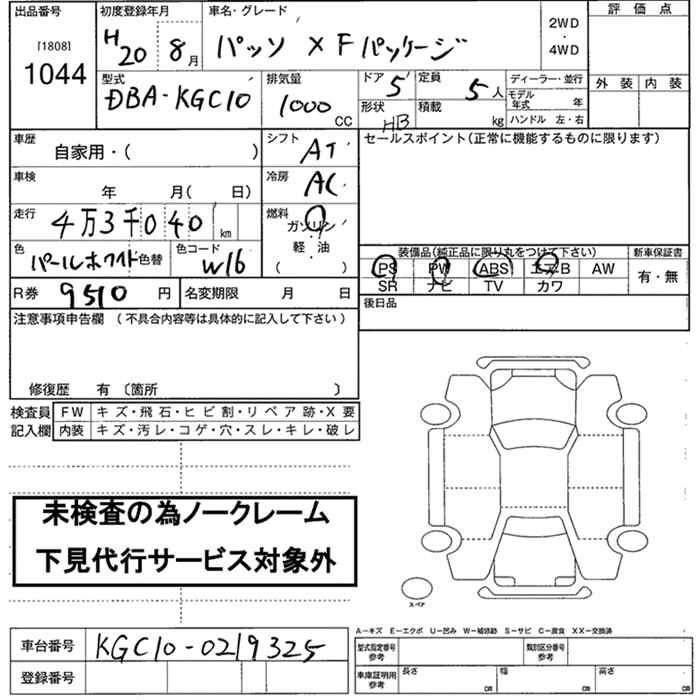 出品番号 初度登録年月 車名・グレード 評価点
[1808] H20 8月 パッソ X Fパッケージ 2WD ・ 4WD
1044
型式 排気量 ドア 5 定員 5人 ディーラー・並行 外装 内装
DBA-KGC10 1000 CC 形状 HB 積載 kg モデル年式 年
ハンドル 左・右
車歴 自家用・( ) シフト AT セールスポイント(正常に機能するものに限ります)
車検 年 月( 日) 冷房 AC
走行 4万3千040 km 燃料 ガソリン・軽・油 ( )
色 パールホワイト 色替 色コード W16 装備品(純正品に限り丸をつけて下さい) 新車保証書
PS PW ABS エアB AW 有・無
SR ナビ TV カワ
R券 9510 円 名変期限 月 日 後日品
注意事項申告欄 (不具合内容等は具体的に記入して下さい)
修復歴 有 〔箇所 〕
検査員 FW キズ・飛石・ヒビ割・リペア跡・X要
記入欄 内装 キズ・汚レ・コゲ・穴・スレ・キレ・破レ
未検査の為ノークレーム
下見代行サービス対象外
スペア
A-キズ E-エクボ U-凹み W-補修跡 S-サビ C-腐食 XX-交換済
車台番号 KGC10-0219325 型式指定番号 参考 類別区分番号 参考
登録番号 車庫証明用 参考 長さ cm 幅 cm 高さ cm